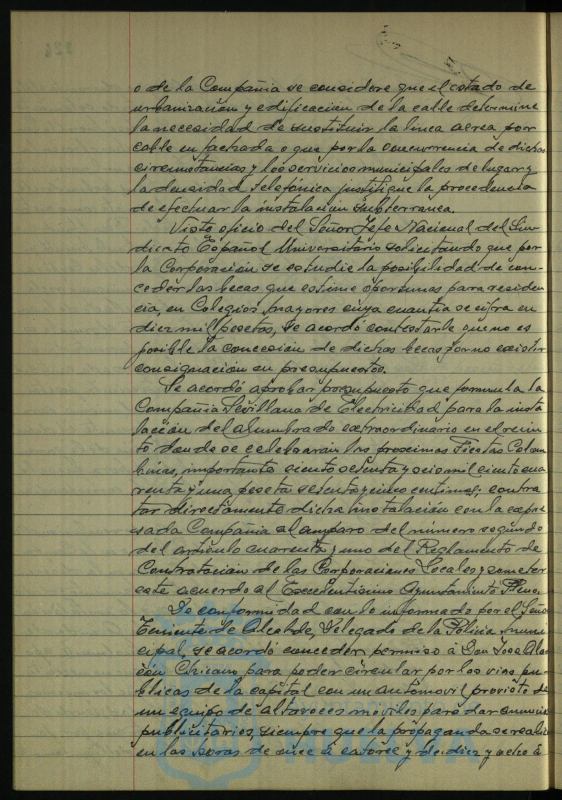 o de la Compañia se considere que el estado de
urbanización y edificación de la calle determine
la necesidad de sustituir la linea aerea por
cable en fachada o que por la concurrencia de dichas
circunstancias y los servicios municipales de lugar y
la densidad telefónica justifique la procedencia
de efectuar la instalación subterranea.
Visto oficio del Señor Jefe Nacional del Sin-
dicato Español Universitario solicitando que por
la Corporación se estudie la posibilidad de con-
ceder las becas que estime oportunas para residen
cia, en Colegios Mayores cuya cuantia se cifra en
diez mil pesetas, se acordó contestarle que no es
posible la concesión de dichas becas por no existir
consignación en presupuestos.
Se acordó aprobar presupuesto que formula la
Compañia Sevillana de Electricidad para la insta
lación del alumbrado extraordinario en el recin
to donde se celebrarán las proximas Fiestas Colom
binas, importante ciento setenta y ocio mil ciento cua
renta y una peseta setenta y cinco centimos; contra
tar directamente dicha instalación con la expre
sada Compañia al amparo del número segundo
del articulo cuarenta y uno del Reglamento de
Contratación de las Corporaciones Locales y someter
este acuerdo al Excelentisimo Ayuntamiento Pleno.
De conformidad con lo informado por el Señor
Teniente de Alcalde, Delegado de la Policia muni
cipal, se acordó conceder permiso a Don José Alar
cón Chicano para poder circular por las vias pu
blicas de la capital con un automovil provisto de
un equipo de altavoces móviles para dar anuncios
publicitarios, siempre que la propaganda se realice
en las horas de once a catorce y de diez y ocho a